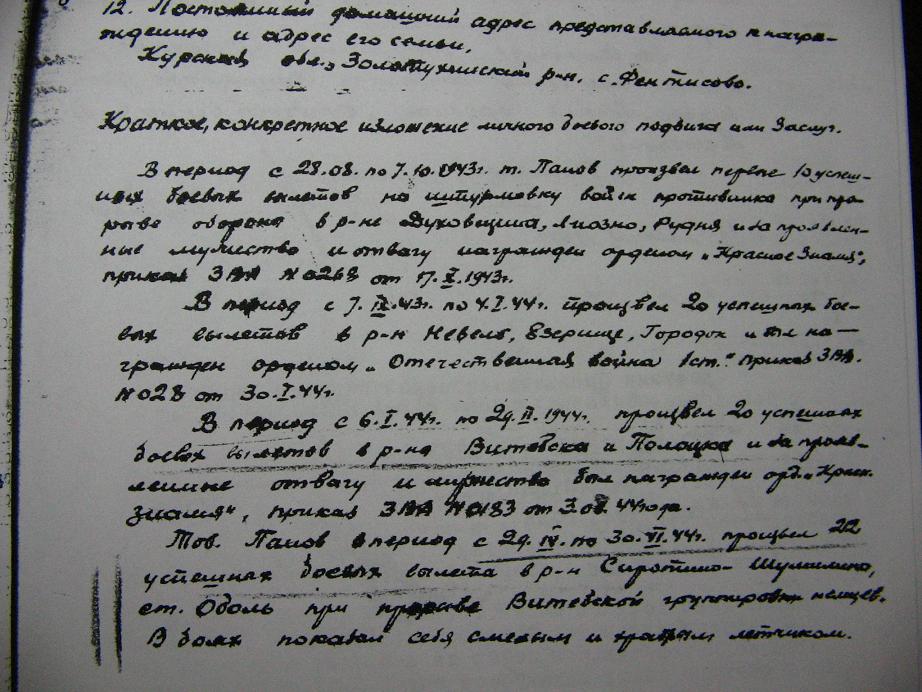 12. Постоянный домашний адрес представляемого к награ-
ждению и адрес его семьи.
Курская обл., Золотухинский р-н. с. Фентисово.
Краткое, конкретное изложение личного боевого подвига или заслуг.
В период с 28.08. по 7.10.1943г. т. Панов произвел первые 10 успеш-
ных боевых вылетов на штурмовку войск противника при про-
рыве обороны в р-не Духовщина, Лиозно, Рудня и за проявлен-
ные мужество и отвагу награжден орденом "Красное Знамя",
приказ 3ВА №0268 от 17.X.1943г.
В период с 7. 43г. по 4.I.44г. произвел 20 успешных бое-
вых вылетов в р-н Невель, Езерище, Городок и был на-
гражден орденом "Отечественная война 1ст." приказ 3ВА.
№028 от 30.I.44г.
В период с 6.I.44г. по 29. 1944г. произвел 20 успешных
боевых вылетов в р-не Витебска и Полоцка и за прояв-
ленные отвагу и мужество был награжден орд. "Красн.
знамя", приказ 3ВА №0183 от 44года.
Тов. Панов в период с 29.IV. по 30.VI.44г. произвел 22
успешных боевых вылета в р-н Сиротино - Шумилино,
ст. Оболь при прорыве Витебской группировки немцев.
В боях показал себя смелым и храбрым летчиком.